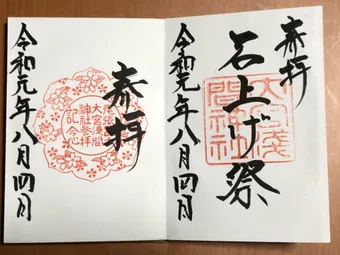 奉拝
石上げ祭
大宮浅
間神社
令和元年八月四日
奉拝
大宮浅間
神社参拝
記念
令和元年八月四日